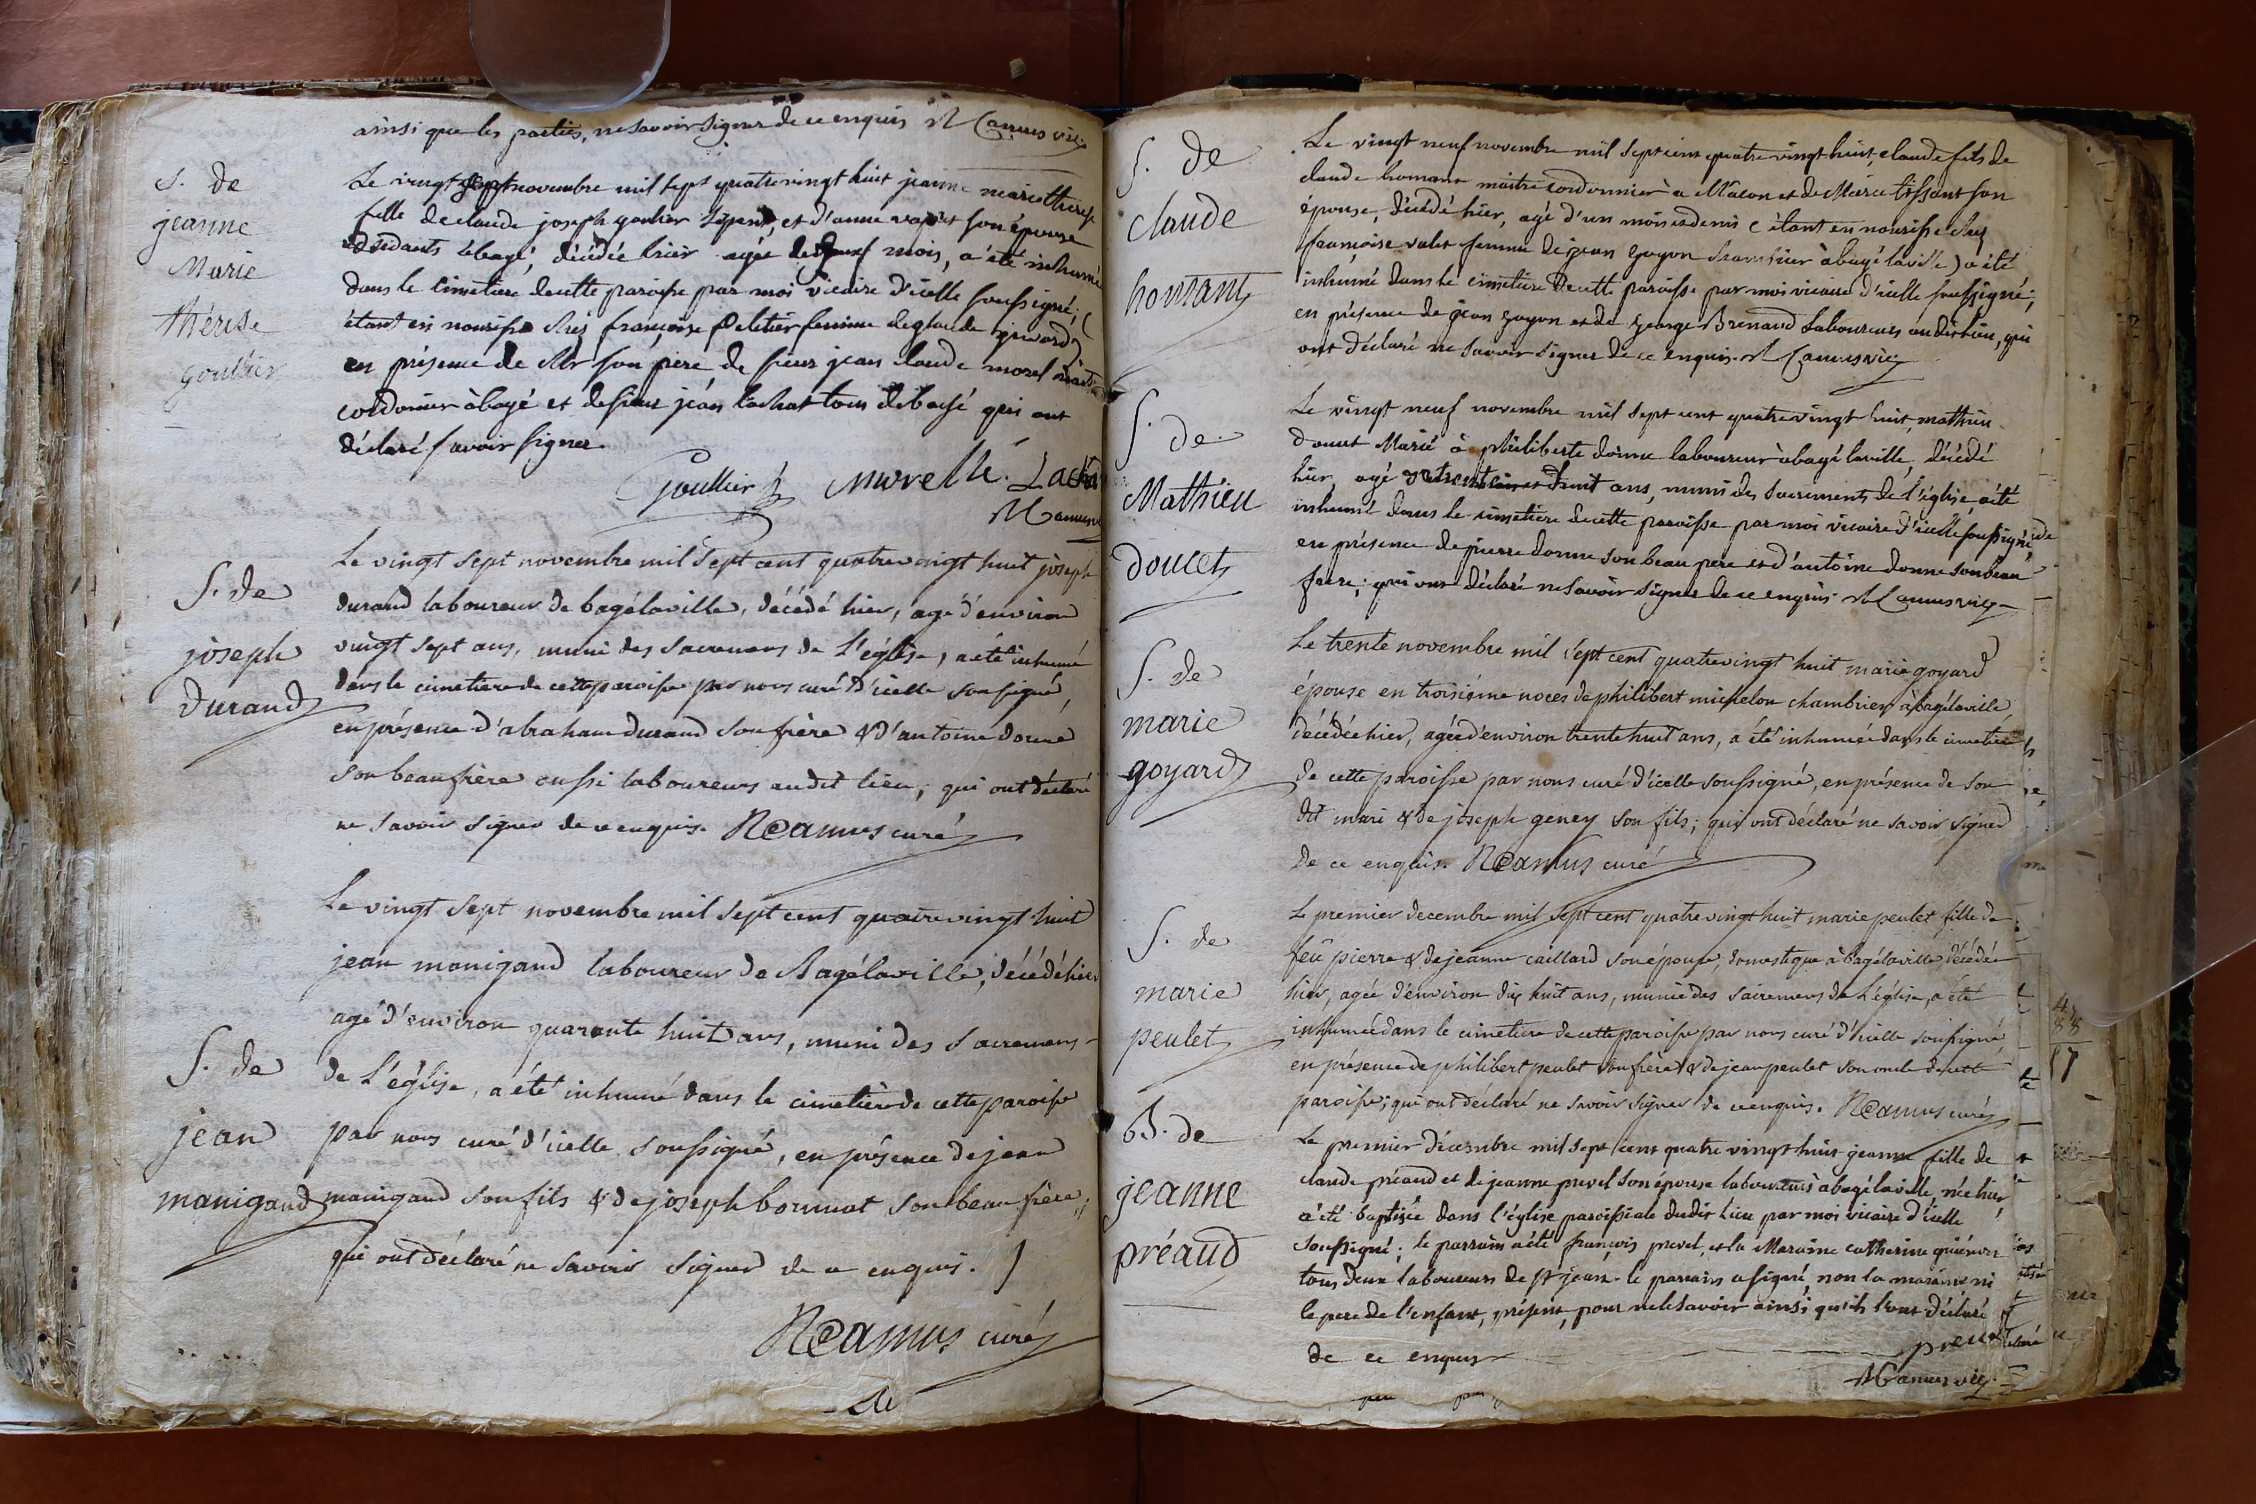 ainsi que les parties, ne savoir signer de ce enquis N Camus vic.
S. de
jeanne
Marie
thérèse
goullier
Le vingt sept novembre mil sept quatre vingt huit jeanne marie therese
fille de claude joseph goulier et d'anne son épouse
résidants à bagé, décédée hier agée de neuf mois, a été inhumée
dans le cimetiere de cette paroisse par moi vicaire d'icelle soussigné; (
étant en nourisse chés françoise Peletier femme de glaude
en présence de son pere de sieur jean claude morel
cordonier à bagé et de sieur jean lachat tous de bagé qui ont
déclaré savoir signer
Goullier Morelle. Lacha
N Camus
S. de
joseph
Durand
Le vingt sept novembre mil sept cent quatre vingt huit joseph
durand laboureur de bagélaville, décédé hier, agé d'environ
vingt sept ans, muni des sacremens de l'église, a été inhumé
dans le cimetiere de cette paroisse par nous curé d'icelle soussigné,
en présence d'abraham durand son frère & d'antoine donne
son beaufrère aussi laboureurs audit lieu, qui ont déclaré
ne savoir signer de ce enquis. N Camus curé
S. de
jean
manigand
Le vingt sept novembre mil sept cent quatre vingt huit
jean manigand laboureur de Bagélaville, décédé hier
agé d'environ quarante huit ans, muni des sacremens
de l'église, a été inhumé dans le cimetière de cette paroisse
par nous curé d'icelle soussigné, en présence de jean
manigand son fils & de joseph bornuat son beau frère;
qui ont déclaré ne savoir signer de ce enquis.
N Camus curé
Le
S. de
claude
homant
Le vingt neuf novembre mil sept cent quatre vingt huit, claude fils de
claude homant maitre cordonnier à Mâcon et de Marie tissant son
épouse, décédé hier, agé d'un mois et demi (étant en nourisse chez
françoise valet femme de jean goyon à bagé laville) a été
inhumé dans le cimetiere de cette paroisse par moi vicaire d'icelle soussigné;
en présence de jean goyon et de george Brenaud laboureurs audit lieu, qui
ont déclaré ne savoir signer de ce enquis. N Camus vic
S. de
Mathieu
doucet
Le vingt neuf novembre mil sept cent quatre vingt huit, mathieu
doucet Marié à philiberte donne laboureur à bagé laville, décédé
hier, agé huit ans, muni des sacrements de l'église, a été
inhumé dans le cimetiere de cette paroisse par moi vicaire d'icelle soussigné,
en présence de pierre donne son beau pere et d'antoine donne son beau
frere; qui ont déclaré ne savoir signer de ce enquis. N Camus vic
S. de
marie
goyard
Le trente novembre mil sept cent quatre vingt huit marie goyard
épouse en troisième noces de philibert michelon chambrier à bagélaville,
décédée hier, agée d'environ trente huit ans, a été inhumée dans le cimetière
de cette paroisse par nous curé d'icelle soussigné, en présence de son
dit mari & de joseph geney son fils; qui ont déclaré ne savoir signer
de ce enquis. N Camus curé
S. de
marie
peulet
Le premier decembre mil sept cent quatre vingt huit marie peulet fille de
feû pierre & de jeanne caillard son épouse, domestique à bagélaville, décédée
hier, agée d'environ dix huit ans, munie des sacremens de l'église, a été
inhumée dans le cimetiere de cette paroisse par nous curé d'icelle soussigné,
en présence de philibert peulet son frère & de jean peulet son oncle de cette
paroisse; qui ont déclaré ne savoir signer de ce enquis. N Camus curé
B. de
jeanne
préaud
Le premier décembre mil sept cent quatre vingt huit jeanne fille de
claude préaud et de jeanne prevel son épouse laboureurs à bagé laville, née hier,
a été baptisée dans l'église paroissiale dudit lieu par moi vicaire d'icelle
soussigné; le parrain a été françois prevel, et la Maraine catherine
tous deux laboureurs de st jean. le parrain a signé, non la maraine ni
le pere de l'enfant, présent, pour ne le savoir ainsi qu'ils l'ont déclaré
de ce enquis
N Camus vic.